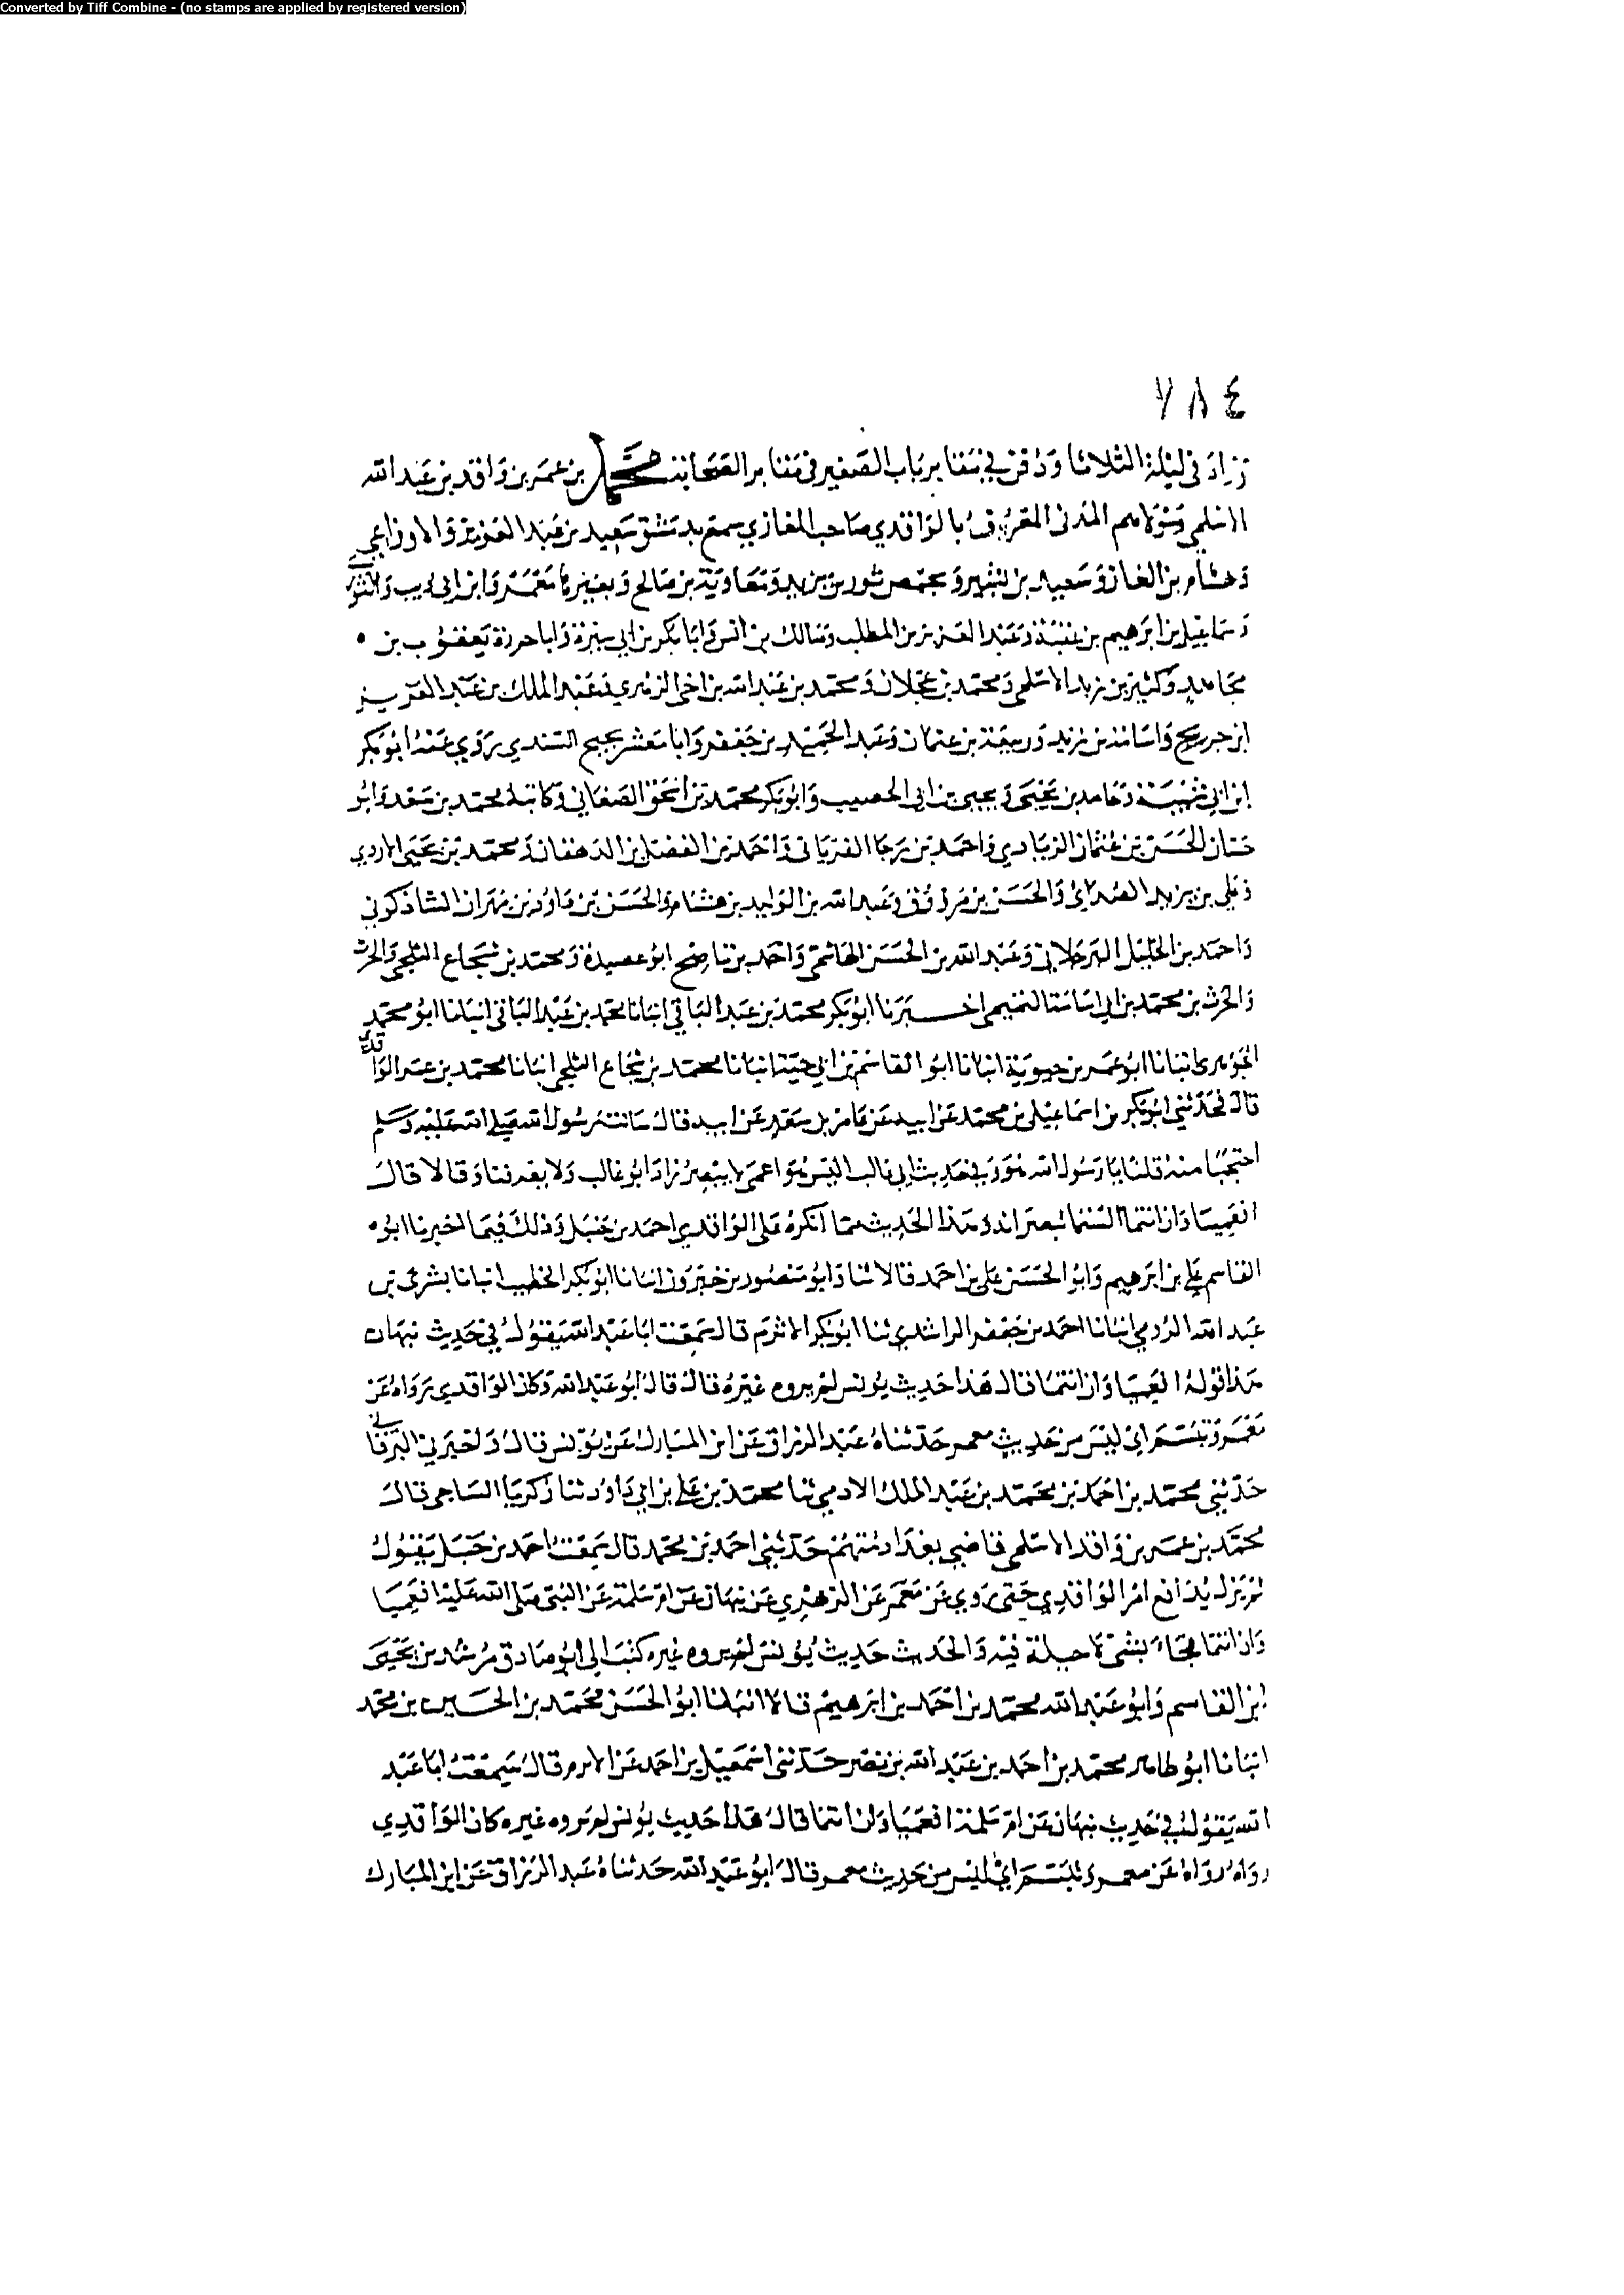 Converted by Tiff Combine - (no stamps are applied by registered version)
٧٨٤
زاد في ليلة الثلاثا ودفن في بباب الصغير في مقابر الصحابة محمد بن عمر بن واقد بن عبد الله
الاسلمي مولاهم المدني المعروف بالواقدي صاحب المغازي سمع بدمشق سعيد بن عبد العزيز والاوزاعي
وهشام بن الغاز وسعيد بن بشير وبحمص ثور بن يزيد ومعاوية بن صالح وبغيرها معمر وابن ابي ذيب والثوري
وسماعيل بن ابرهيم بن عقبة وعبد العزيز بن المطلب ومالك بن انس وابا بكر بن ابي سبرة وابا حزرة يعقوب بن
مجاهد وكثير بن زيد الاسلمي ومحمد بن عجلان ومحمد بن عبد الله بن اخي الزهري وعبد الملك بن عبد العزيز
ابن جريج واسامة بن زيد وربيعة بن عثمان وعبد الحميد بن جعفر وابا معشر نجيح السندي روي عنه ابو بكر
ابن ابي شيبة وحامد بن يحيى ويحيى بن ابي الخصيب وابو بكر محمد بن اسحق الصغاني وكاتبه محمد بن سعد وابو
حسان الحسن بن عثمان الزيادي واحمد بن رجا الفريابي واحمد بن الفضل بن الدهقان ومحمد بن يحيى الازدي
وعلي بن يزيد الصدائي والحسن بن مرزوق وعبد الله بن الوليد بن هشام والحسن بن داود بن مهران الشاذكوني
واحمد بن الخليل البرجلاني وعبد الله بن الحسن الهاشمي واحمد بن ناصح ابو عصيدة ومحمد بن شجاع الثلجي والحرث
والحرث بن محمد بن ابي اسامة التميمي اخبرنا ابو بكر محمد بن عبد الباقي انبانا محمد بن عبد الباقي انبانا ابو محمد
الجوهري انبانا ابو عمر بن حيوية انبانا ابو القاسم بن ابي حية انبانا محمد بن شجاع الثلجي انبانا محمد بن عمر الواقدي
قال فحدثني ابو بكر بن اسماعيل بن محمد عن ابيه عن عامر بن سعد عن ابيه قال رسول الله صلى الله عليه وسلم
احتجبا منه قلنا يا رسول الله في حديث ابي غالب اليس هو اعمى لا يبصر زاد ابو غالب ولا يعرفنا وقالا قال
افعميا وان انتما الستما تبصرانه وهذا الحديث مما انكره على الواقدي احمد بن حنبل وذلك فيما اخبرنا ابو
القاسم علي بن ابرهيم وابو الحسن علي بن احمد قالا ثنا وابو منصور بن خيرون انبانا ابو بكر الخطيب انبانا بشرى بن
عبد الله الرومي انبانا احمد بن جعفر الراشدي ثنا ابو بكر الاثرم قال سمعت ابا عبد الله يقول في حديث نبهان
هذا قوله افعميا وان انتما قال هذا حديث يونس لم يروه غيره قال قال ابو عبد الله وكان الواقدي رواه عن
معمر وتبسم اي ليس من حديث معمر حدثناه عبد الرزاق عن ابن المبارك عن يونس قال واخبرني البرقاني
حدثني محمد بن احمد بن محمد بن عبد الملك الادمي ثنا محمد بن علي بن ابي داود ثنا زكريا الساجي قال
محمد بن عمر بن واقد الاسلمي قاضي بغداد متهم حدثني احمد بن محمد قال سمعت احمد بن حنبل يقول
لم يزل يدافع امر الواقدي حتى روي عن معمر عن الزهري عن نبهان عن ام سلمة عن النبي صلى الله عليه افعميا
وان انتما فجاء بشي لا حيلة فيه والحديث حديث يونس لم يروه غيره كتب الي ابو صادق مرشد بن يحيى
ابن القاسم وابو عبد الله محمد بن احمد بن ابرهيم قالا انبانا ابو الحسن محمد بن الحسين بن محمد
انبانا ابو طاهر محمد بن احمد بن عبد الله بن نصر حدثني اسمعيل بن احمد عن الاثرم قال سمعت ابا عبد
الله يقول في حديث نبهان عن ام سلمة افعميا وان انتما قال هذا حديث يونس لم يروه غيره كان الواقدي
رواه رواه عن معمر وتبسم اي ليس من حديث معمر قال ابو عبد الله حدثناه عبد الرزاق عن ابن المبارك